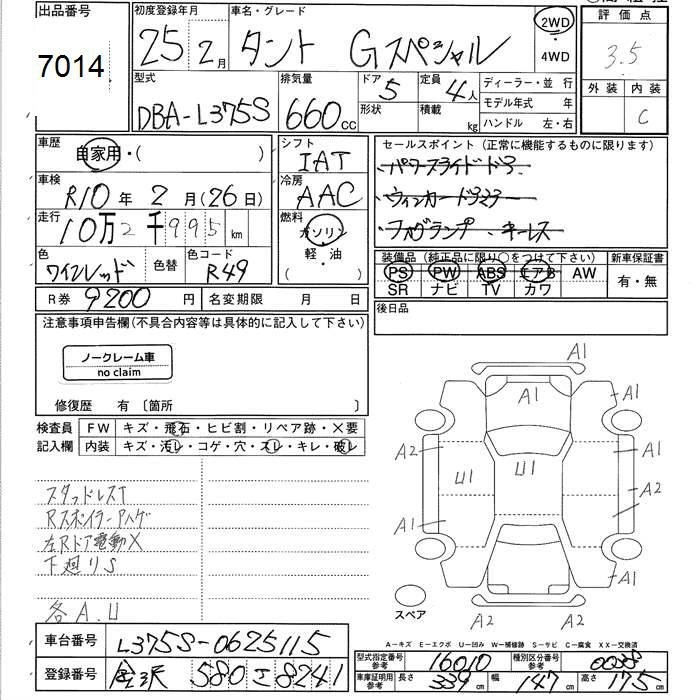 出品番号
7014
初度登録年月
25 2月
車名・グレード
タント Gスペシャル
2WD
4WD
評価点
3.5
外装 内装
C
型式
DBA-L375S
排気量
660 cc
ドア 5
形状
定員 4人
積載 kg
ディーラー・並 行
モデル年式 年
ハンドル 左・右
車歴
自家用・( )
車検
R10年 2月(26日)
走行
10万2千995km
色
ワインレッド
色替
色コード
R49
シフト
IAT
冷房
AAC
燃料
ガソリン
軽・油
( )
セールスポイント(正常に機能するものに限ります)
・パワースライドドア
・ウィンカードアミラー
・フォグランプ ・キーレス
装備品(純正品に限り○をつけて下さい)
PS PW ABS エアB AW
SR ナビ TV カワ
新車保証書
有・無
R券 9200円
名変期限 月 日
後日品
注意事項申告欄(不具合内容等は具体的に記入して下さい)
ノークレーム車
no claim
修復歴 有 〔箇所 〕
検査員
記入欄
FW キズ・飛石・ヒビ割・リペア跡・×要
内装 キズ・汚レ・コゲ・穴・スレ・キレ・破レ
スタッドレスT
Rスポイラーアハゲ
左Rドア電動X
下廻りS
各A.U
A1
A1
A1
A2
A1
U1
U1
A2
A1
A1
A2
A2
スペア
A-キズ E-エクボ U-凹み W-補修跡 S-サビ C-腐食 XX-交換済
車台番号
L375S-0625115
登録番号
金沢 580 エ 8241
型式指定番号
参考
16010
種別区分番号
参考
車庫証明用
参考
長さ 339cm
幅 147cm
高さ 175cm